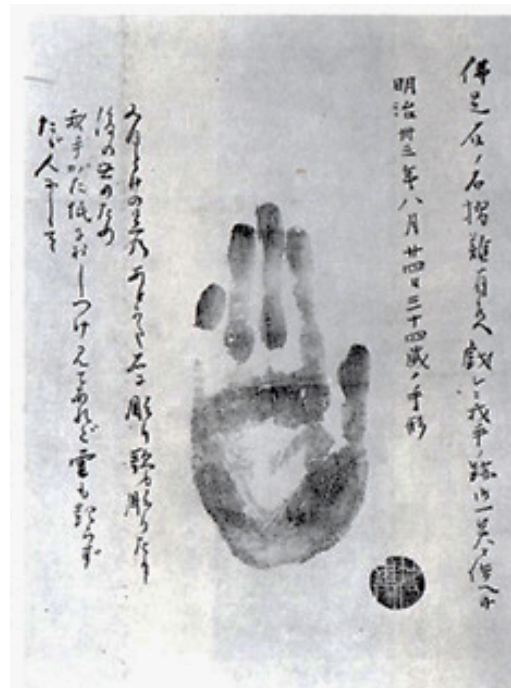 佛足石ノ石摺難有 戯レニ我手ノ跡
明治卅三年八月廿四日三十四歳ノ手形
みほとけの足のあとかた石に彫り歌も彫りたり
後の世のため
我手がた紙におしつけ見てあれど雲も起らず
たゞ人にして